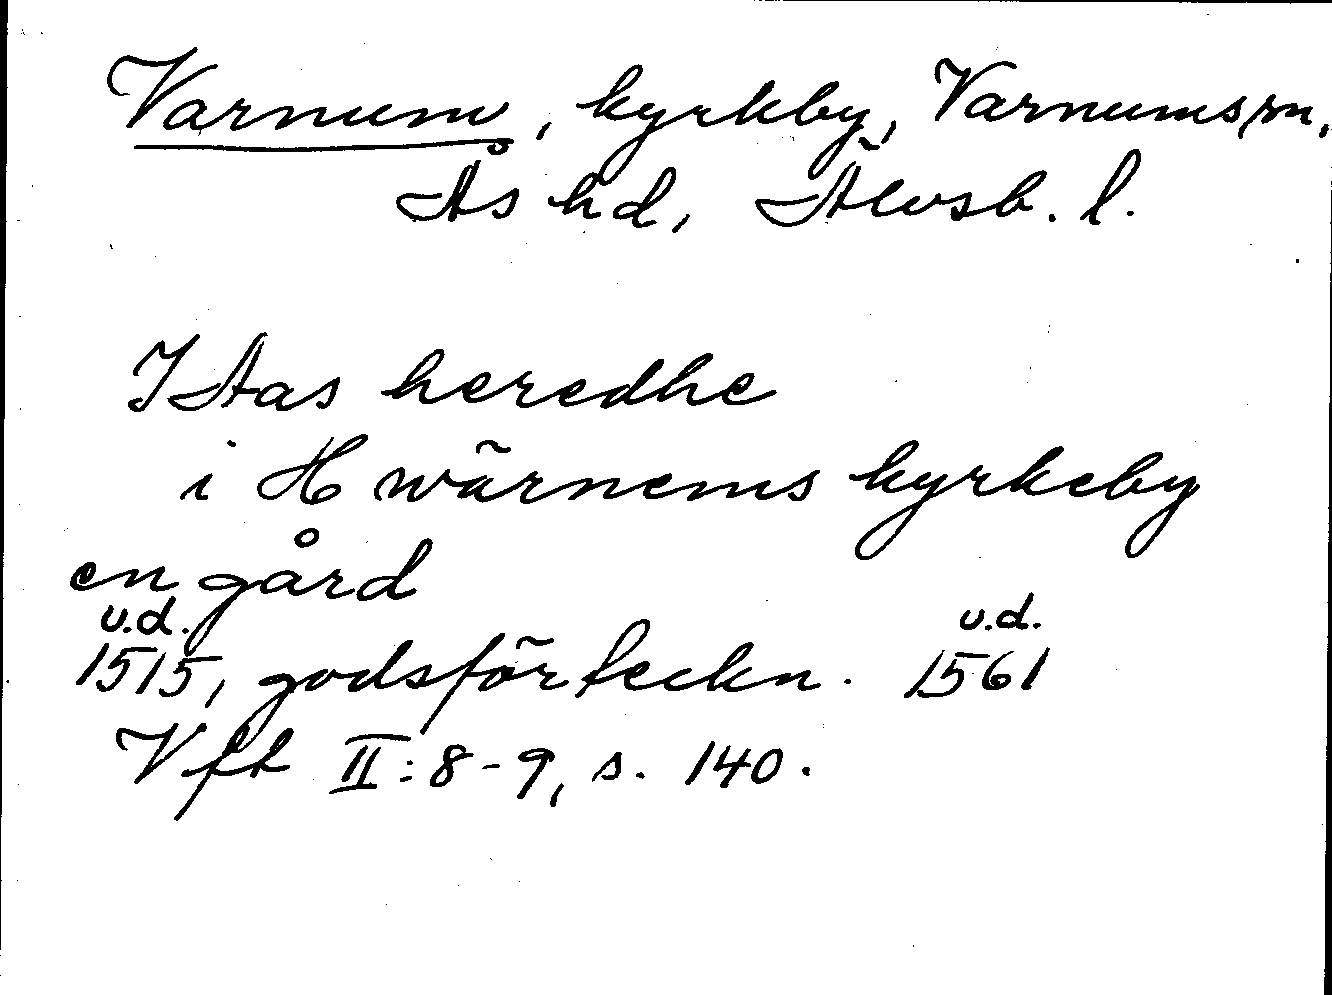 Varnum, kyrkby, Varnums sn,
Ås hd, Älvsb. l.
I Aas heredhe
i Hwärnems kyrkeby
en gård
u.d. u.d.
1515, godsförteckn. 1561
Vft II:8-9, s. 140.